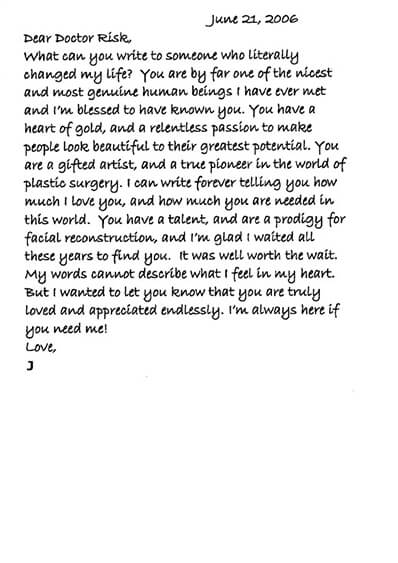 June 21, 2006
Dear Doctor Risk,
What can you write to someone who literally
changed my life? You are by far one of the nicest
and most genuine human beings I have ever met
and I'm blessed to have known you. You have a
heart of gold, and a relentless passion to make
people look beautiful to their greatest potential. You
are a gifted artist, and a true pioneer in the world of
plastic surgery. I can write forever telling you how
much I love you, and how much you are needed in
this world. You have a talent, and are a prodigy for
facial reconstruction, and I'm glad I waited all
these years to find you. It was well worth the wait.
My words cannot describe what I feel in my heart.
But I wanted to let you know that you are truly
loved and appreciated endlessly. I'm always here if
you need me!
Love,
J